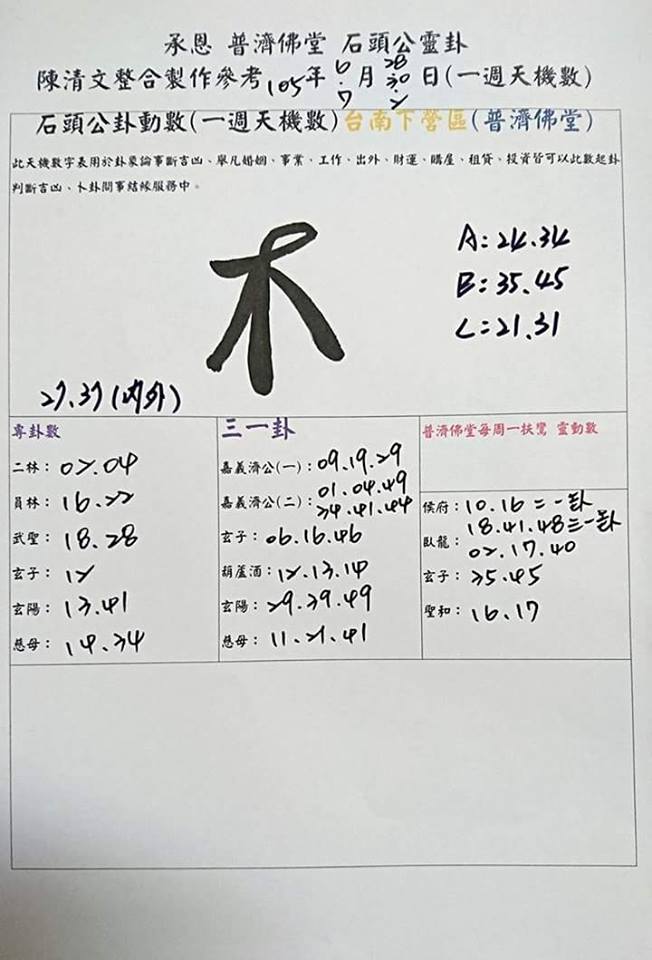 承恩 普濟佛堂 石頭公靈卦
陳清文整合製作參考105年6.7月28.30.2日(一週天機數)
石頭公卦動數(一週天機數)台南下營區(普濟佛堂)
此天機數字表用於卦象論事斷吉凶、舉凡婚姻、事業、工作、出外、財運、購屋、租賃、投資皆可以此數起卦
判斷吉凶、卜卦問事結緣服務中。
A:24.34
B:35.45
C:21.31
27.37(內外)
專卦數
二林:02.04
員林:16.22
武聖:18.28
玄子:12
玄陽:13.41
慈母:14.34
三一卦
嘉義濟公(一):09.19.29
嘉義濟公(二):01.04.49
24.41.44
玄子:06.16.46
葫蘆酒:12.13.14
玄陽:29.39.49
慈母:11.21.41
普濟佛堂每周一扶鸞 靈動數
侯府:10.16二一卦
18.41.48三一卦
臥龍:02.17.40
玄子:35.45
聖和:16.17